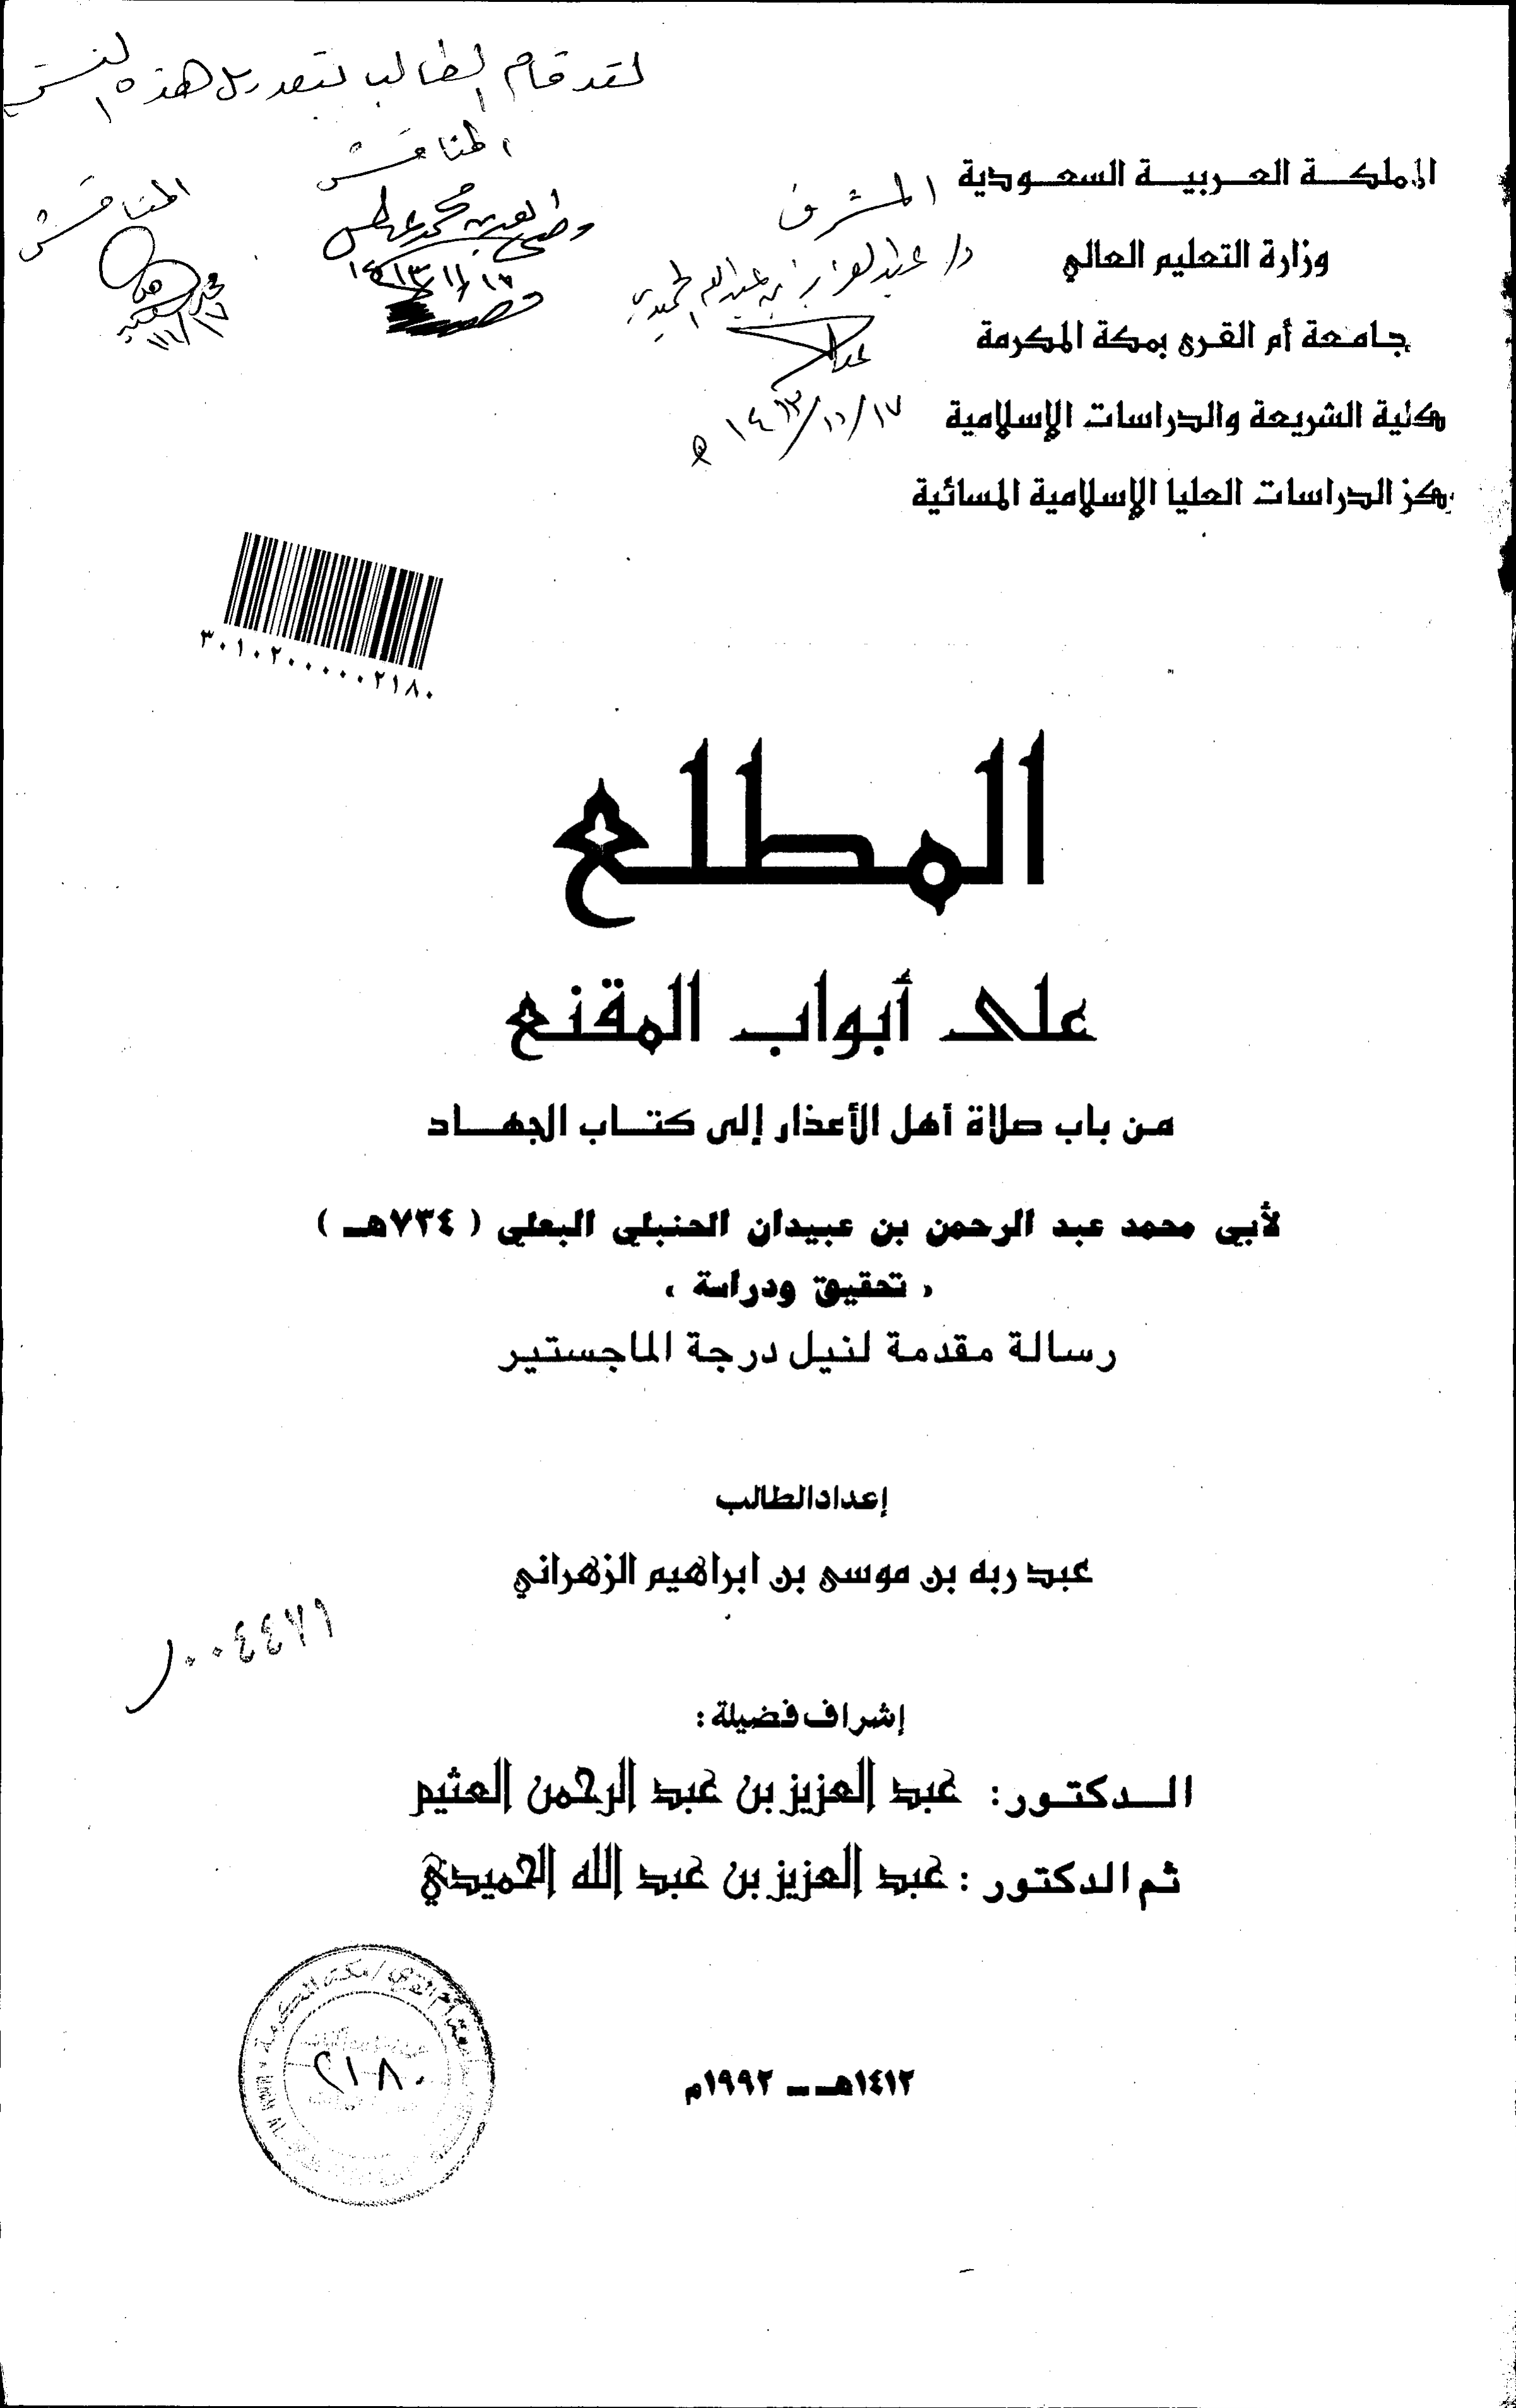 لقد قام الطالب بتعديل هذه النسخة
المملكة العربية السعودية
المشرف
المناقش
المناقش
وزارة التعليم العالي
د/ عبدالعزيز بن عبدالله الحميدي
وصي الله بن محمد عباس
جامعة أم القرى بمكة المكرمة
كلية الشريعة والدراسات الإسلامية
مركز الدراسات العليا الإسلامية المسائية
٣٠١٠٢٠٠٠٠٠٢١٨٠
المطلع
على أبواب المقنع
من باب صلاة أهل الأعذار إلى كتاب الجهاد
لأبي محمد عبد الرحمن بن عبيدان الحنبلي البعلي ( ٧٣٤هـ )
« تحقيق ودراسة »
رسالة مقدمة لنيل درجة الماجستير
إعداد الطالب
عبد ربه بن موسى بن ابراهيم الزهراني
إشراف فضيلة :
الدكتور : عبد العزيز بن عبد الرحمن العثيم
ثم الدكتور : عبد العزيز بن عبد الله الحميدي
٢١٨٠
١٤١٢هـ ـــ ١٩٩٢م